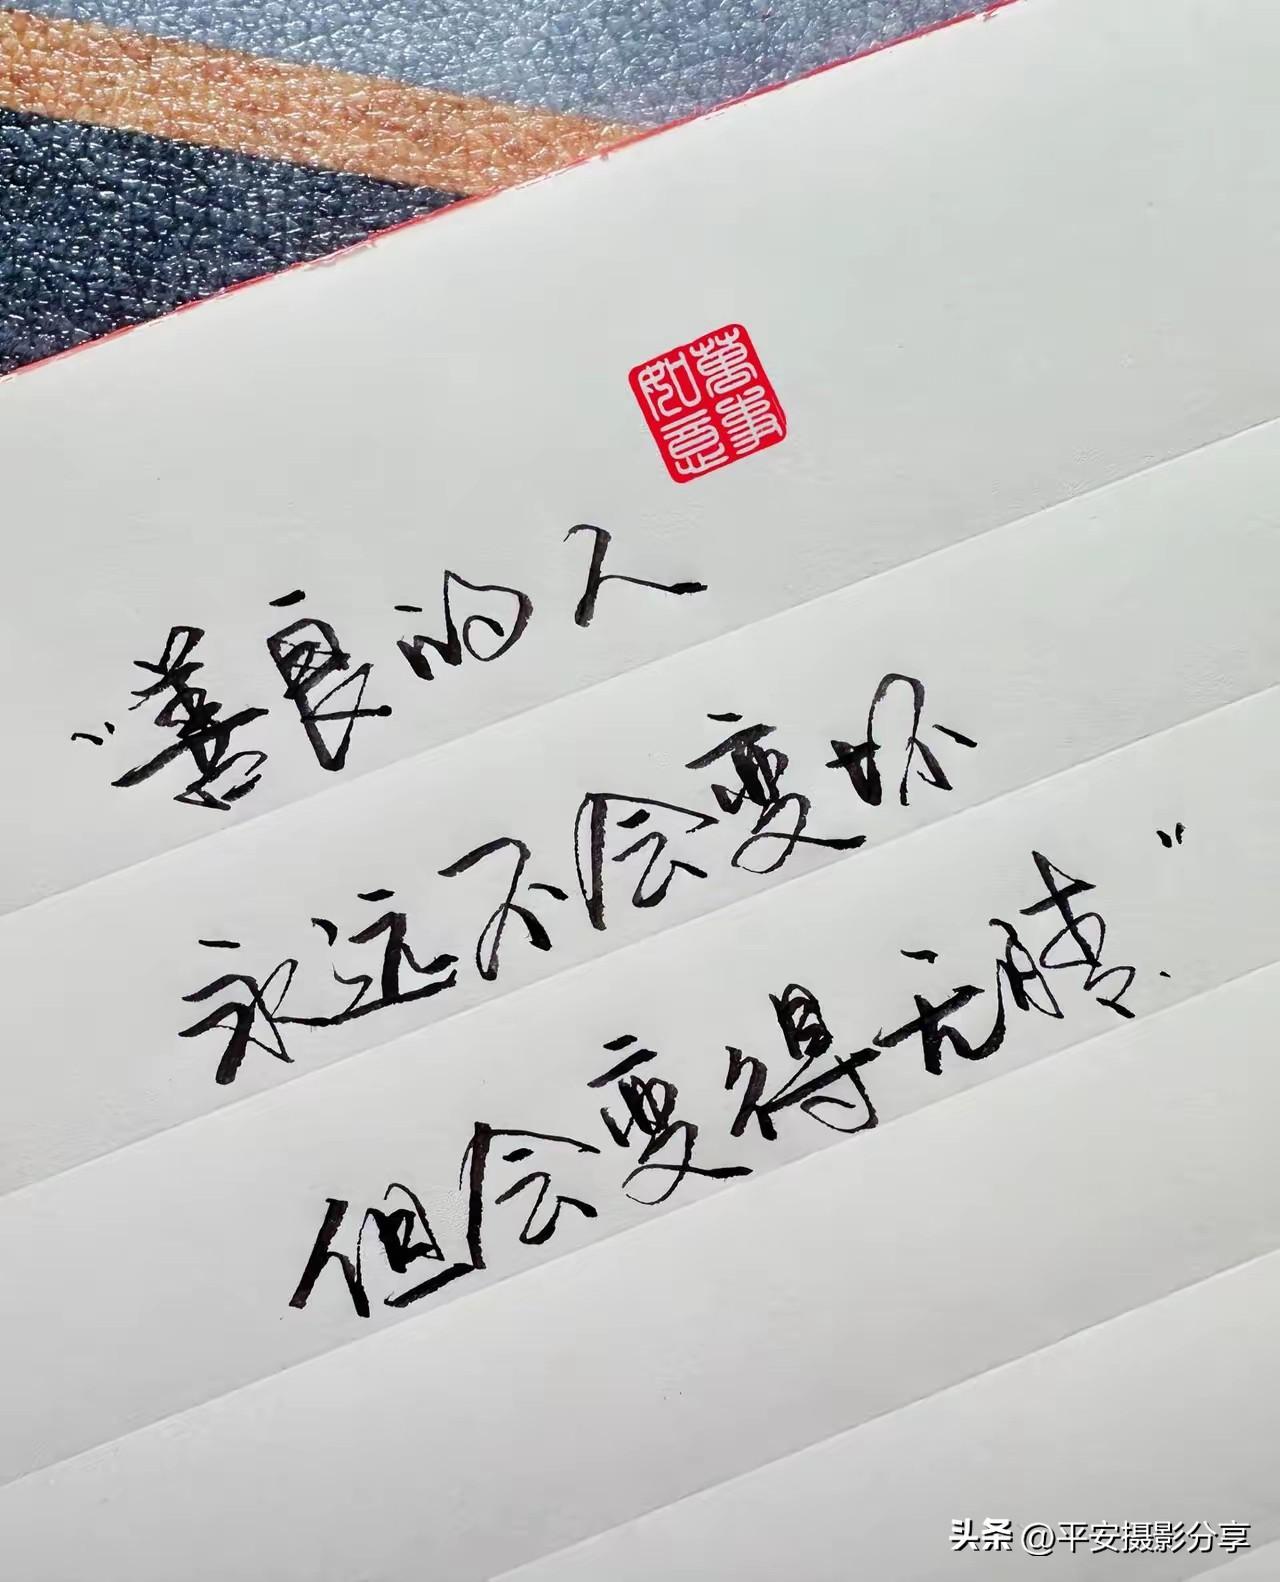 萬事
如意
“善良的人
永远不会变坏
但会变得无情.”
头条 @平安摄影分享